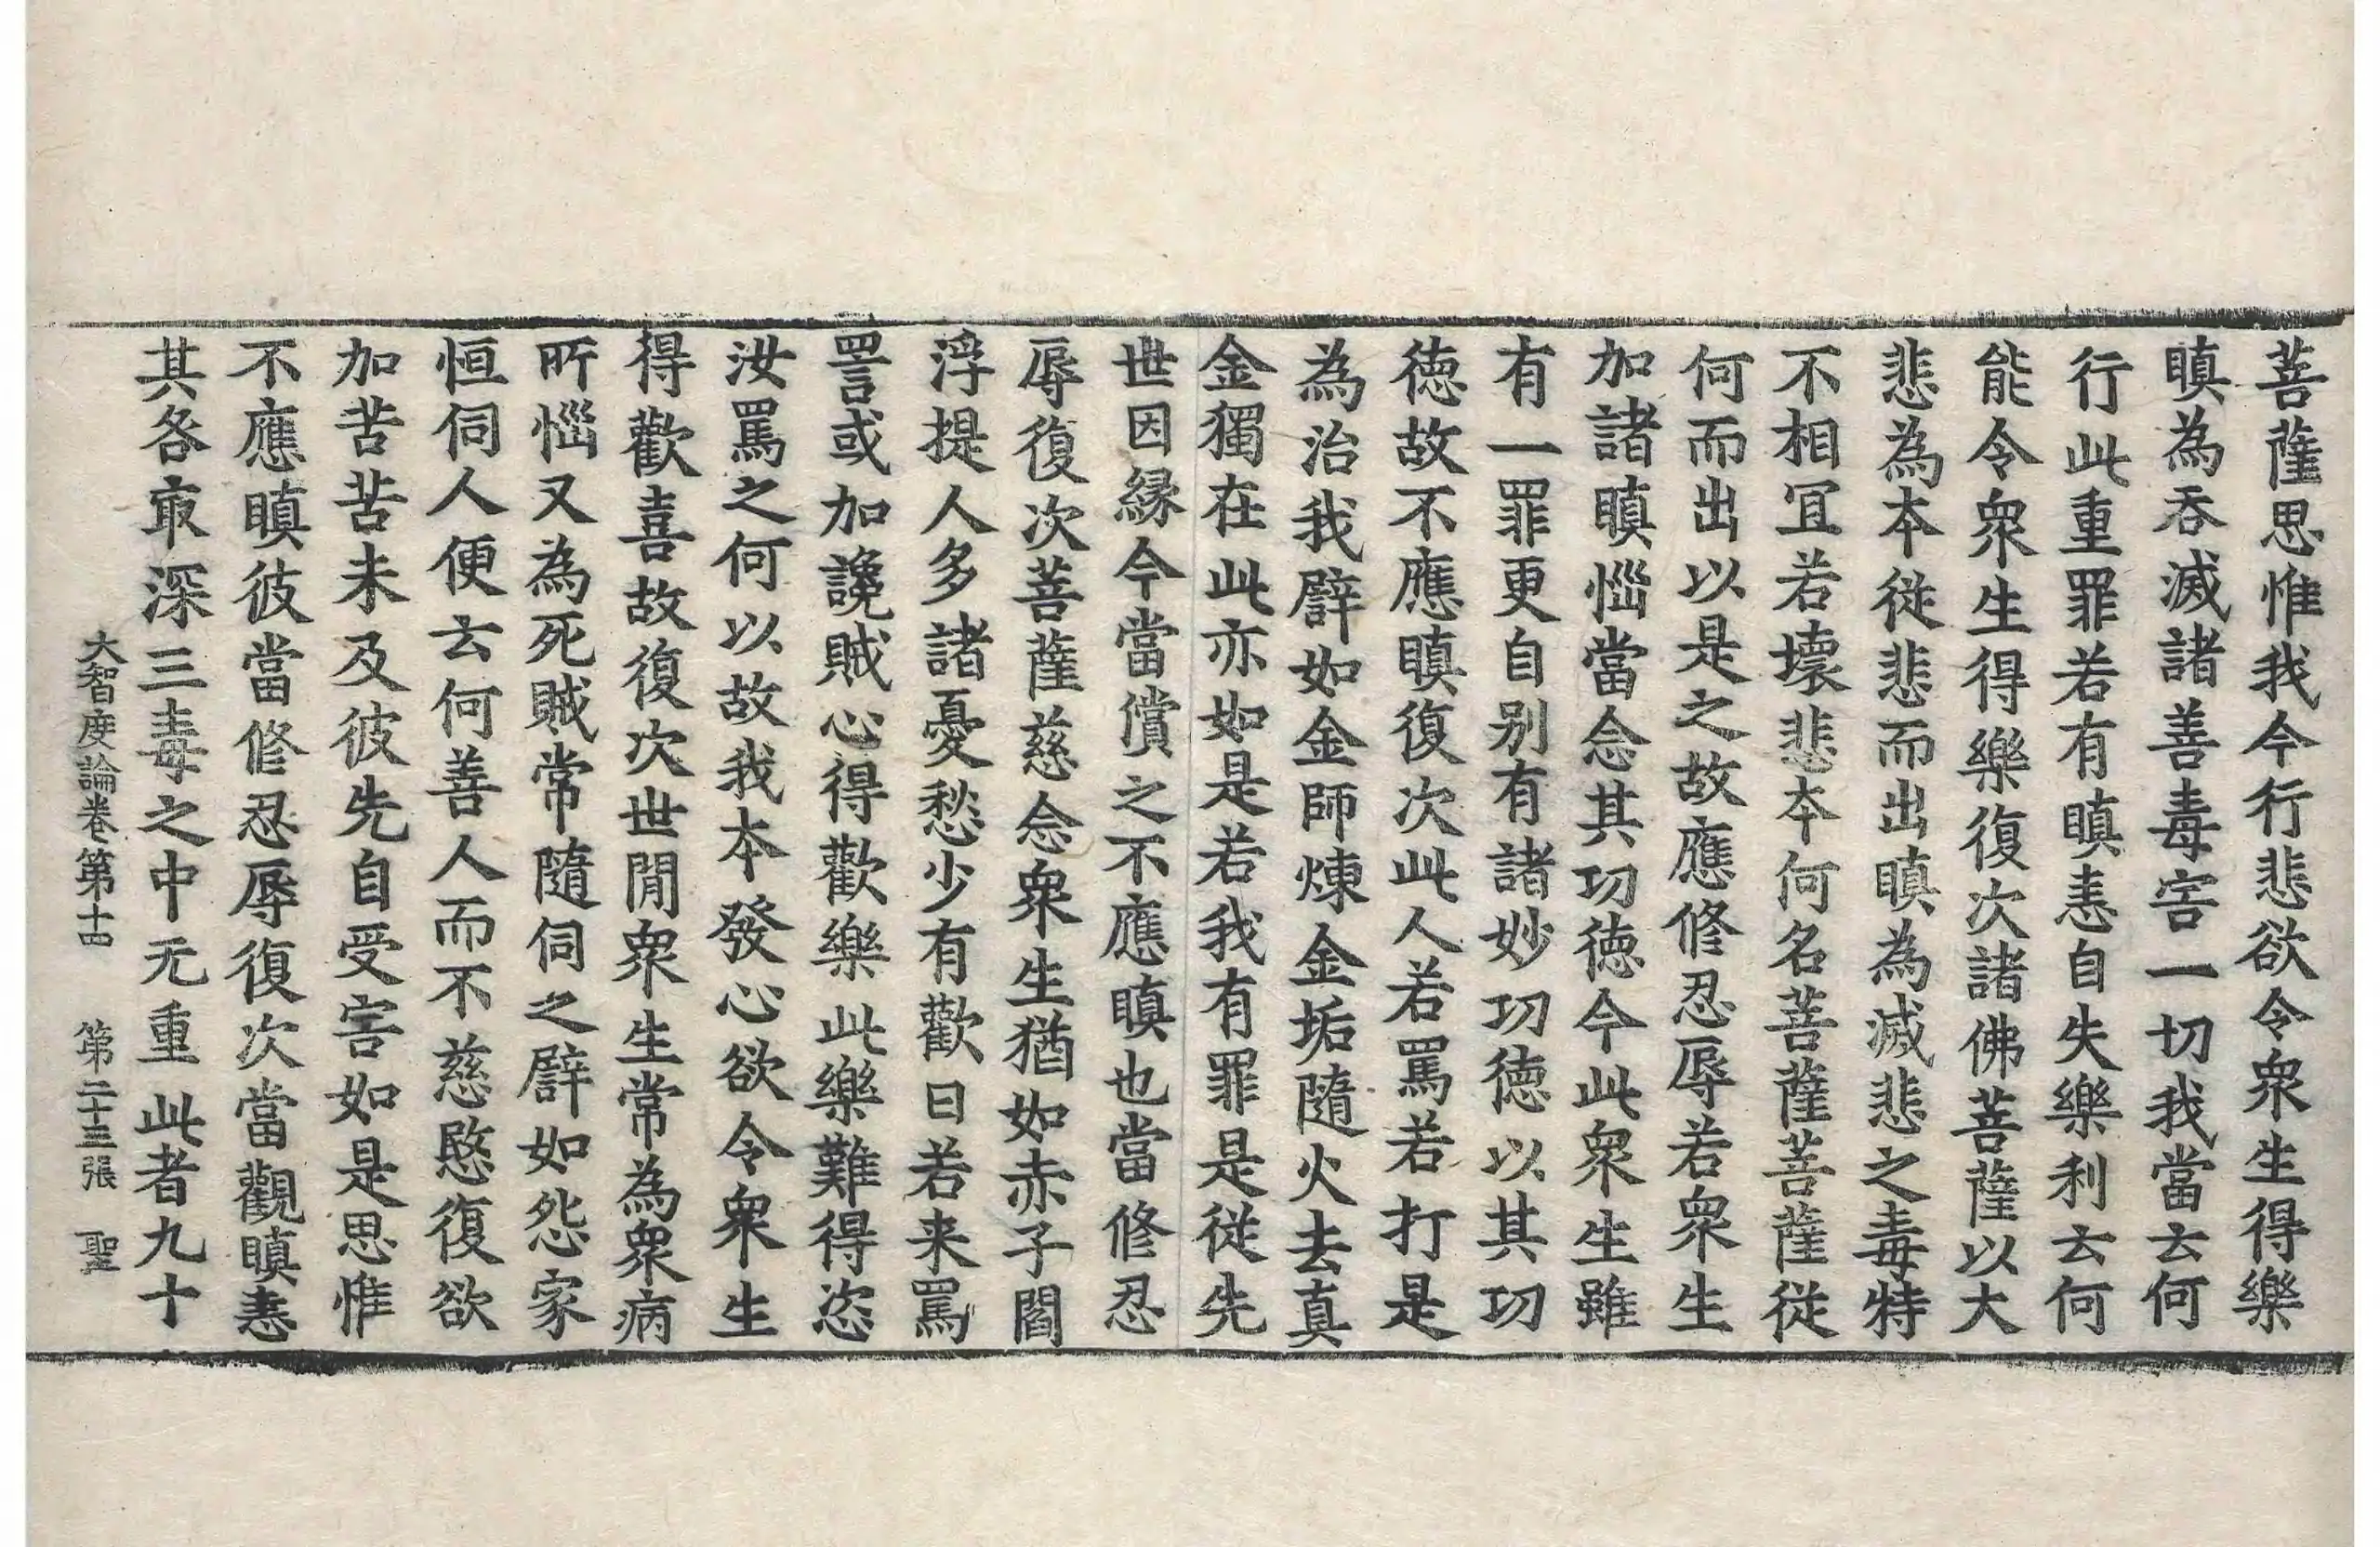 菩薩思惟我今行悲欲令衆生得樂
瞋為吞滅諸善毒害一切我當云何
行此重罪若有瞋恚自失樂利云何
能令衆生得樂復次諸佛菩薩以大
悲為本從悲而出瞋為滅悲之毒特
不相冝若壞悲本何名菩薩菩薩從
何而出以是之故應修忍辱若衆生
加諸瞋惱當念其功德今此衆生雖
有一罪更自別有諸妙功德以其功
德故不應瞋復次此人若罵若打是
為治我譬如金師煉金垢隨火去真
金獨在此亦如是若我有罪是從先
世因緣今當償之不應瞋也當修忍
辱復次菩薩慈念衆生猶如赤子閻
浮提人多諸憂愁少有歡日若来罵
詈或加讒賊心得歡樂此樂難得恣
汝罵之何以故我本發心欲令衆生
得歡喜故復次世間衆生常為衆病
所惱又為死賊常隨伺之譬如怨家
恒伺人便云何善人而不慈愍復欲
加苦苦未及彼先自受害如是思惟
不應瞋彼當修忍辱復次當觀瞋恚
其咎㝡深三毒之中无重此者九十
大智度論卷第十四 第二十三張 聖